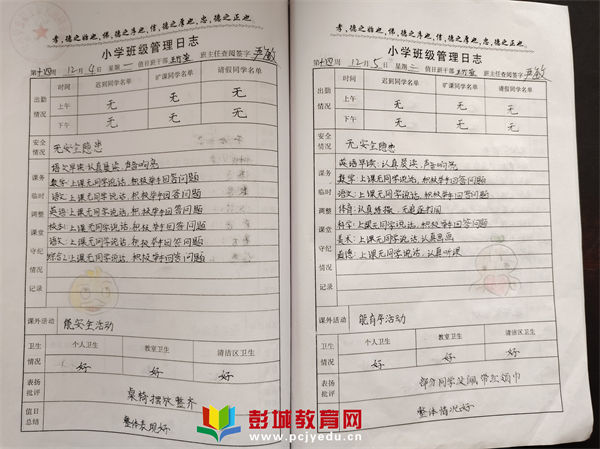 孝,德之始也,悌,德之序也,信,德之厚也,忠,德之正也。
小学班级管理日志
第十四周 12月4日 星期一 值日班干部 班主任查阅签字 严敏
出勤情况
时间 迟到同学名单 旷课同学名单 请假同学名单
上午 无 无 无
下午 无 无 无
安全情况 无安全隐患
课务临时调整课堂守纪情况记录
语文早读:认真晨读、声音响亮
数学:上课无同学说话,积极举手回答问题
语文:上课无同学说话,积极举手回答问题
英语:上课无同学说话,积极举手回答问题
上课无同学说话,积极举手回答问题
语文:上课无同学说话,积极举手回答问题
综合:上课无同学说话,积极举手回答问题
课外活动 能安全活动
卫生情况
个人卫生 教室卫生 清洁区卫生
好 好 好
表扬批评 桌椅摆放整齐
值日总结 整体表现好
孝,德之始也,悌,德之序也,信,德之厚也,忠,德之正也。
小学班级管理日志
第十四周 12月5日 星期二 值日班干部 班主任查阅签字 严敏
出勤情况
时间 迟到同学名单 旷课同学名单 请假同学名单
上午 无 无 无
下午 无 无 无
安全情况 无安全隐患
课务临时调整课堂守纪情况记录
英语早读:认真晨读、声音响亮
数学:上课无同学说话,积极举手回答问题
语文:上课无同学说话,积极举手回答问题
体育:认真排操,无
科学:上课无同学说话,积极举手回答问题
美术:上课无同学说话,认真画画
道德:上课无同学说话,认真听读
课外活动 能有序活动
卫生情况
个人卫生 教室卫生 清洁区卫生
好 好 好
表扬批评 部分同学没佩带红领巾
值日总结 整体情况好
彭城教育网
www.pcjyedu.cn